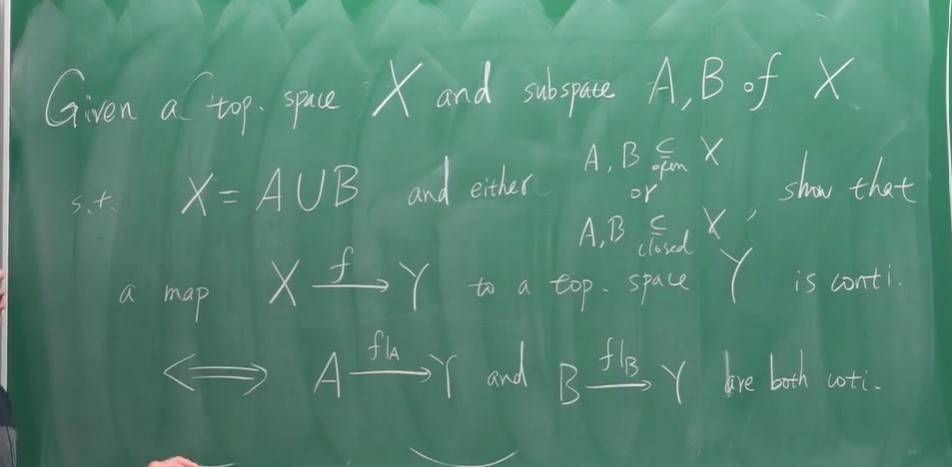 Given a top. space X and subspace A, B of X
s.t. X = A ∪ B and either A, B ⊆ open X or A, B ⊆ closed X, show that
a map X →f Y to a top. space Y is conti.
⟺ A →f|A Y and B →f|B Y are both coti.